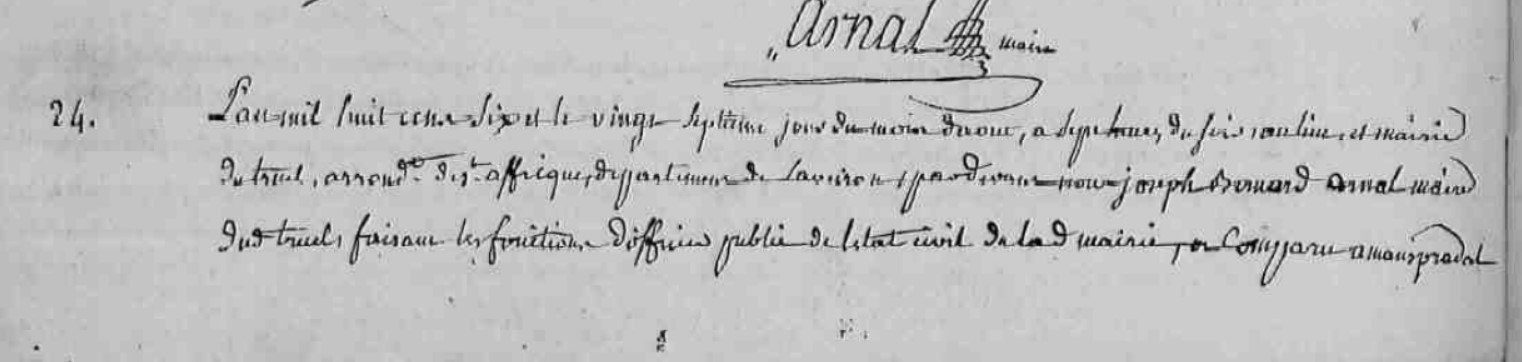 Arnal maire
24. L'an mil huit cent six et le vingt septieme jour du mois daout, a sept heures du soir en lieu, et mairie
du truel, arrond.t de s.t affrique, departement de laveiron, pardevant nous joseph Bernard arnal maire
dud truel, faisant les fonctions d'officier public de letat civil de lad mairie, a Comparu amans pradal